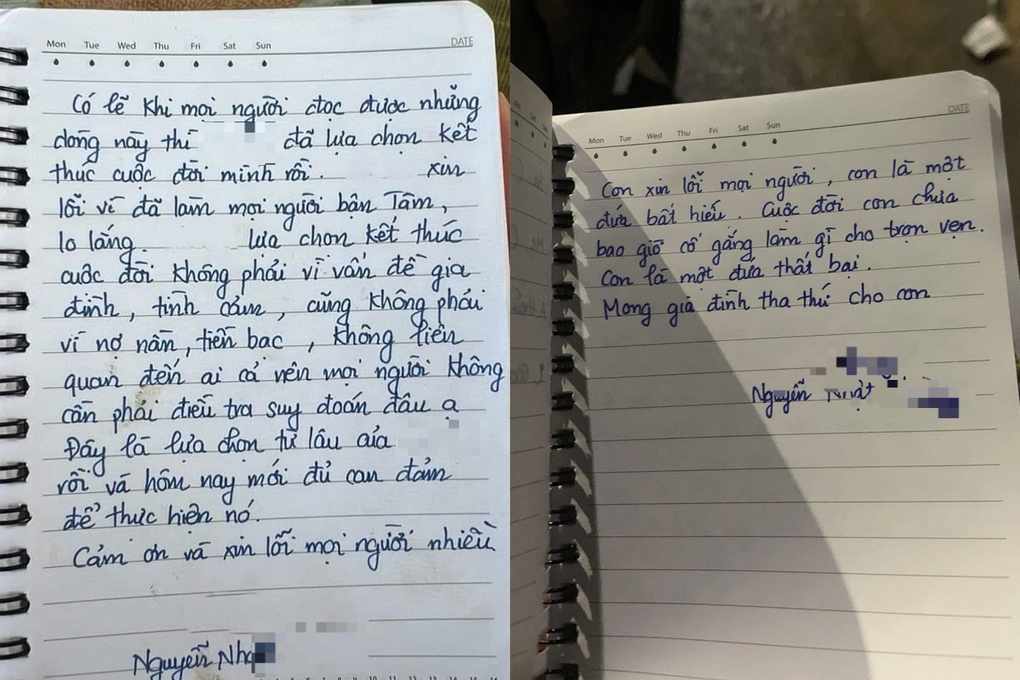 Mon Tue Wed Thu Fri Sat Sun DATE
Có lẽ khi mọi người đọc được những
dòng này thì đã lựa chọn kết
thúc cuộc đời mình rồi. xin
lỗi vì đã làm mọi người bận Tâm,
lo lắng. lựa chọn kết thúc
cuộc đời không phải vì vấn đề gia
đình, tình cảm, cũng không phải
vì nợ nần, tiền bạc, không liên
quan đến ai cả nên mọi người không
cần phải điều tra suy đoán đâu ạ
Đây là lựa chọn từ lâu của
rồi và hôm nay mới đủ can đảm
để thực hiện nó.
Cảm ơn và xin lỗi mọi người nhiều
Nguyễn
Mon Tue Wed Thu Fri Sat Sun DATE
Con xin lỗi mọi người, con là một
đứa bất hiếu. Cuộc đời con chưa
bao giờ cố gắng làm gì cho trọn vẹn.
Con là một đứa thất bại.
Mong gia đình tha thứ cho con
Nguyễn